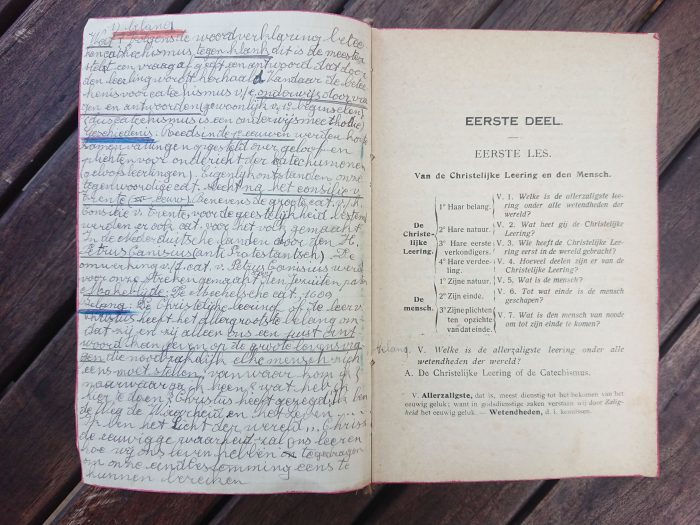 v. belang
Wat? Volgens de woordverklaring betee
kent catechismus, tegenklank, dit is de meester
stelt een vraag af geeft een antwoord dat door
den leerling wordt herhaald. Vandaar de betee
kenis voor catechismus v/e onderwijs door vra
gen en antwoorden (gewoonlijk v/e beginselen)
(dus catechismus is een onderwijsmethodie)
Geschiedenis. Reeds in de eeuwen werden korte
samenvattingen opgesteld over geloof en
plichten voor onderricht der catechumenen
(geloofsleerlingen). Eigenlijk ontstonden onze
tegenwoordige cat. slecht na het consilie v.
Trente (eeuw). Benevens de groote cat. v/h
Consilie v. Trente voor de geestelijkheid bestemd
werden er ook cat. voor het volk gemaakt.
In de duitsche landen door den H.
Petrus Canisius (anti Protestantsch). De
omwerking v/d cat. v. Petrus Canisius werd
voor onze streken gemaakt den Jesuiten pater
Makeblijde. De Mechelsche cat. 1609
Belang. De Christelijke leering of de leer v.
Christus heeft het allergrootste belang om
dat zij en zij alleen ons een juist ant
woord kan geven op de groote levensvra
gen die noodzakelijk elke mensch zich
eens moet stellen, vanwaar kom ik
naar waar ga ik heen & wat heb ik
hier te doen? Christus heeft gezegd ik ben
de Weg de Waarheid en het Leven ....
Ik ben het Licht der wereld... Christus
de eeuwige waarheid zal ons leeren
hoe wij ons leven hebben te gedragen
om onze eindbestemming eens te
kunnen bereiken
EERSTE DEEL.
EERSTE LES.
Van de Christelijke Leering en den Mensch.
De Christe-
lijke
Leering.
1° Haar belang.
V. 1. Welke is de allerzaligste lee-
ring onder alle wetendheden der
wereld?
2° Haar natuur.
V. 2. Wat heet gij de Christelijke
Leering?
3° Hare eerste
verkondigers.
V. 3. Wie heeft de Christelijke Lee-
ring eerst in de wereld gebracht?
4° Hare verdee-
ling.
V. 4. Hoeveel deelen zijn er van
de Christelijke Leering?
De
mensch.
1° Zijne natuur.
V. 5. Wat is de mensch?
2° Zijn einde.
V. 6. Tot wat einde is de mensch
geschapen?
3° Zijne plichten
ten opzichte
van dat einde.
V. 7. Wat is den mensch van noode
om tot zijn einde te komen?
belang 1. V. Welke is de allerzaligste leering onder alle
wetendheden der wereld?
A. De Christelijke Leering of de Catechismus.
V. Allerzaligste, dat is, meest dienstig tot het bekomen van het
eeuwig geluk; want in godsdienstige zaken verstaan wij door Zalig-
heid het eeuwig geluk. — Wetendheden, d. i. kennissen.